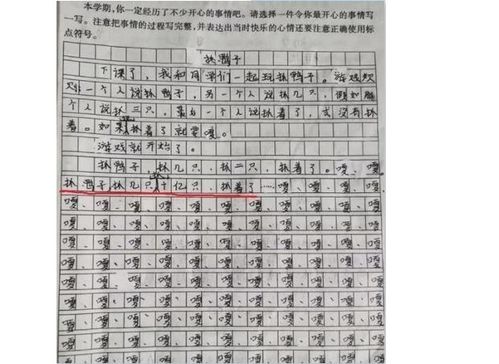 本学期,你一定经历了不少开心的事情吧。请选择一件令你最开心的事情写
一写。注意把事情的过程写完整,并表达出当时快乐的心情还要注意正确使用标
点符号。
抓鸭子
下课了,我和同学们一起玩抓鸭子。游戏规
则:一个人说抓鸭子,另一个人说抓几只,假如
个人说抓三只,第 个人说抓着了,或没有抓
着。如果抓着了就要嘎。
游戏就开始了。
抓鸭子,抓几只,抓二只,抓着了。嘎、嘎。
抓鸭子,抓几只,十亿只,抓着了……嘎、嘎、嘎、
嘎、嘎、嘎、嘎、嘎、嘎、嘎、嘎、嘎
嘎、嘎、嘎、嘎、嘎、嘎、嘎、嘎、嘎
嘎、嘎、嘎、嘎、嘎、嘎、嘎、嘎、嘎
嘎、嘎、嘎、嘎、嘎、嘎、嘎、嘎、嘎
嘎、嘎、嘎、嘎、嘎、嘎、嘎、嘎、嘎
嘎、嘎、嘎、嘎、嘎、嘎、嘎、嘎、嘎
嘎、嘎、嘎、嘎、嘎、嘎、嘎、嘎、嘎
嘎、嘎、嘎、嘎、嘎、嘎、嘎、嘎、嘎
嘎、嘎、嘎、嘎、嘎、嘎、嘎、嘎、嘎